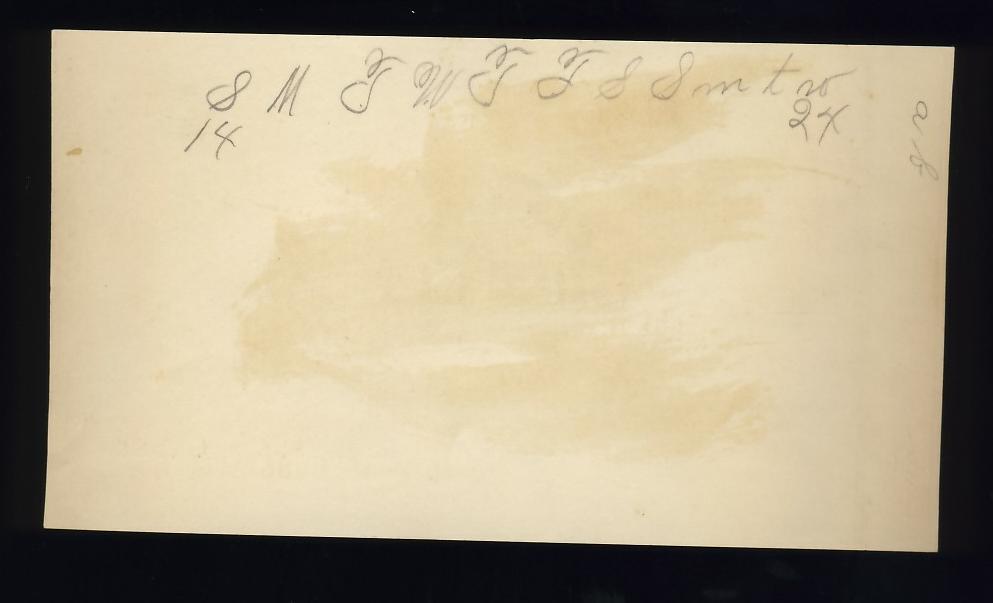 S M T W T F S S m t w
14 24